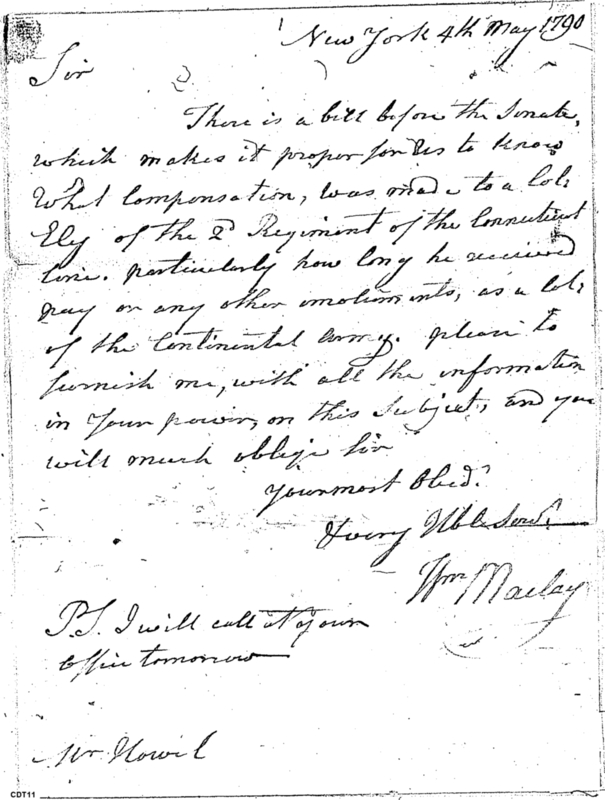 New York 4th May 1790
Sir
There is a bill before the Senate,
which makes it proper for Us to know
What Compensation, was made to a Col:
Ely of the 2d Regiment of the Connecticut
line. particularly how long he received
pay or any other emoluments, as a Col:
of the Continental Army. please to
furnish me, with all the information
in Your power, on this Subject, and you
will much oblige Sir
Your most Obed.t
& very Hble Serv.t
Wm Maclay
P.S. I will call at your
Office tomorrow
Mr Howel
CDT11